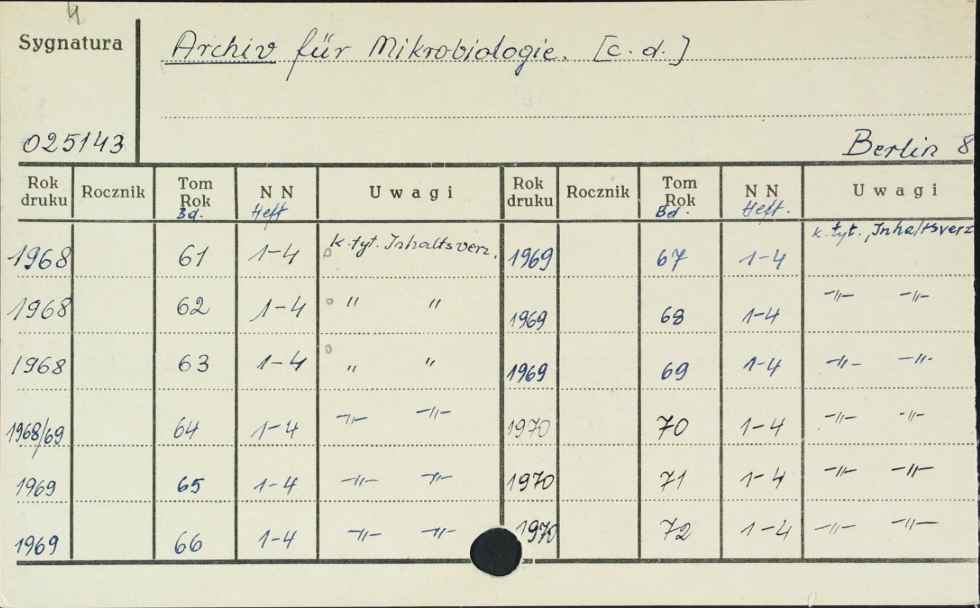 4
Sygnatura
Archiv für Mikrobiologie. [c.d.]
025143
Berlin 8
Rok druku Rocznik Tom Rok Bd. NN Heft Uwagi Rok druku Rocznik Tom Rok Bd. NN Heft. Uwagi
1968 61 1-4 k. tyt. Inhaltsverz. 1969 67 1-4 k. tyt., Inhaltsverz
1968 62 1-4 " " 1969 68 1-4 -"- -"-
1968 63 1-4 " " 1969 69 1-4 -"- -"-
1968/69 64 1-4 -"- -"- 1970 70 1-4 -"- -"-
1969 65 1-4 -"- -"- 1970 71 1-4 -"- -"-
1969 66 1-4 -"- -"- 1970 72 1-4 -"- -"-